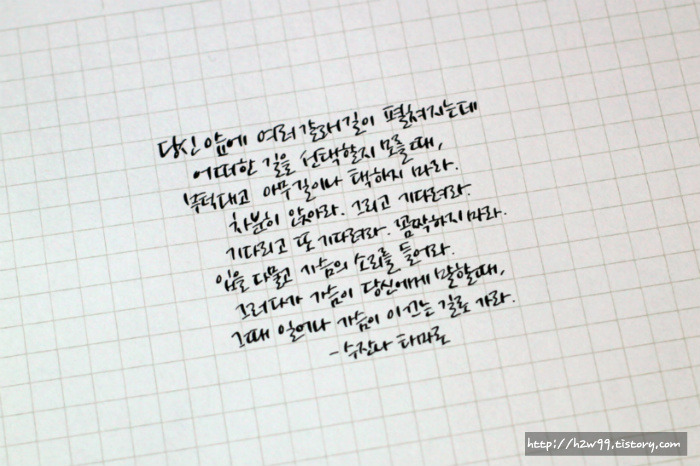 당신 앞에 여러 갈래 길이 펼쳐지는데
어떠한 길을 선택할지 모를 때,
무턱대고 아무 길이나 택하지 마라.
차분히 앉아라. 그리고 기다려라.
기다리고 또 기다려라. 꼼짝하지 마라.
입을 다물고 가슴의 소리를 들어라.
그러다가 가슴이 당신에게 말할 때,
그때 일어나 가슴이 이끄는 길로 가라.
- 수잔나 타마로
http://h2w99.tistory.com